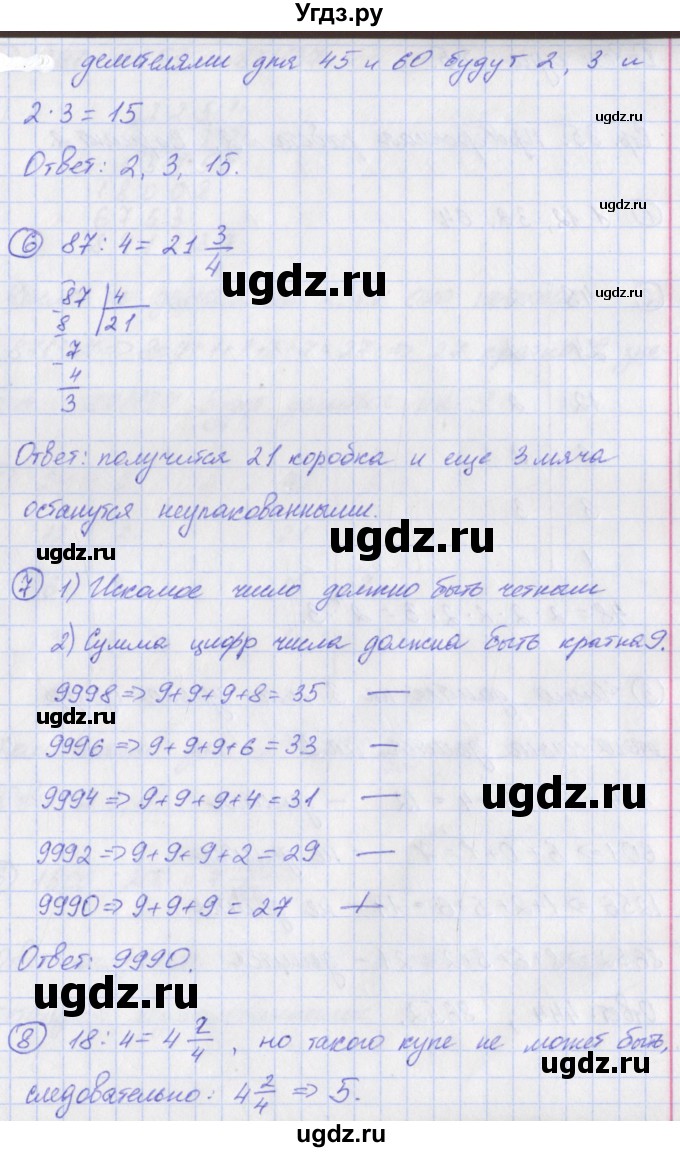 Угдз.ру
делителями для 45 и 60 будут 2, 3 и
ugdz.ru
2·3=15
ugdz.ru
Ответ: 2, 3, 15.
ugdz.ru
⑥ 87:4=21 3/4
ugdz.ru
87 | 4
ugdz.ru
- 8 | 21
- 7
4
3
ugdz.ru
Ответ: получится 21 коробка и еще 3 мяча
останутся неупакованными.
ugdz.ru
ugdz.ru
⑦ 1) Искомое число должно быть четным
2) Сумма цифр числа должна быть кратна 9.
9998 => 9+9+9+8=35 —
ugdz.ru
9996 => 9+9+9+6=33 —
9994 => 9+9+9+4=31 —
ugdz.ru
9992 => 9+9+9+2=29 —
9990 => 9+9+9=27 +
Ответ: 9990.
ugdz.ru
ugdz.ru
⑧ 18:4=4 2/4, но такого купе не может быть,
следовательно: 4 2/4 => 5.
ugdz.ru
ugdz.ru